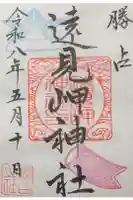 勝占
遠見岬神社
令和八年五月十日